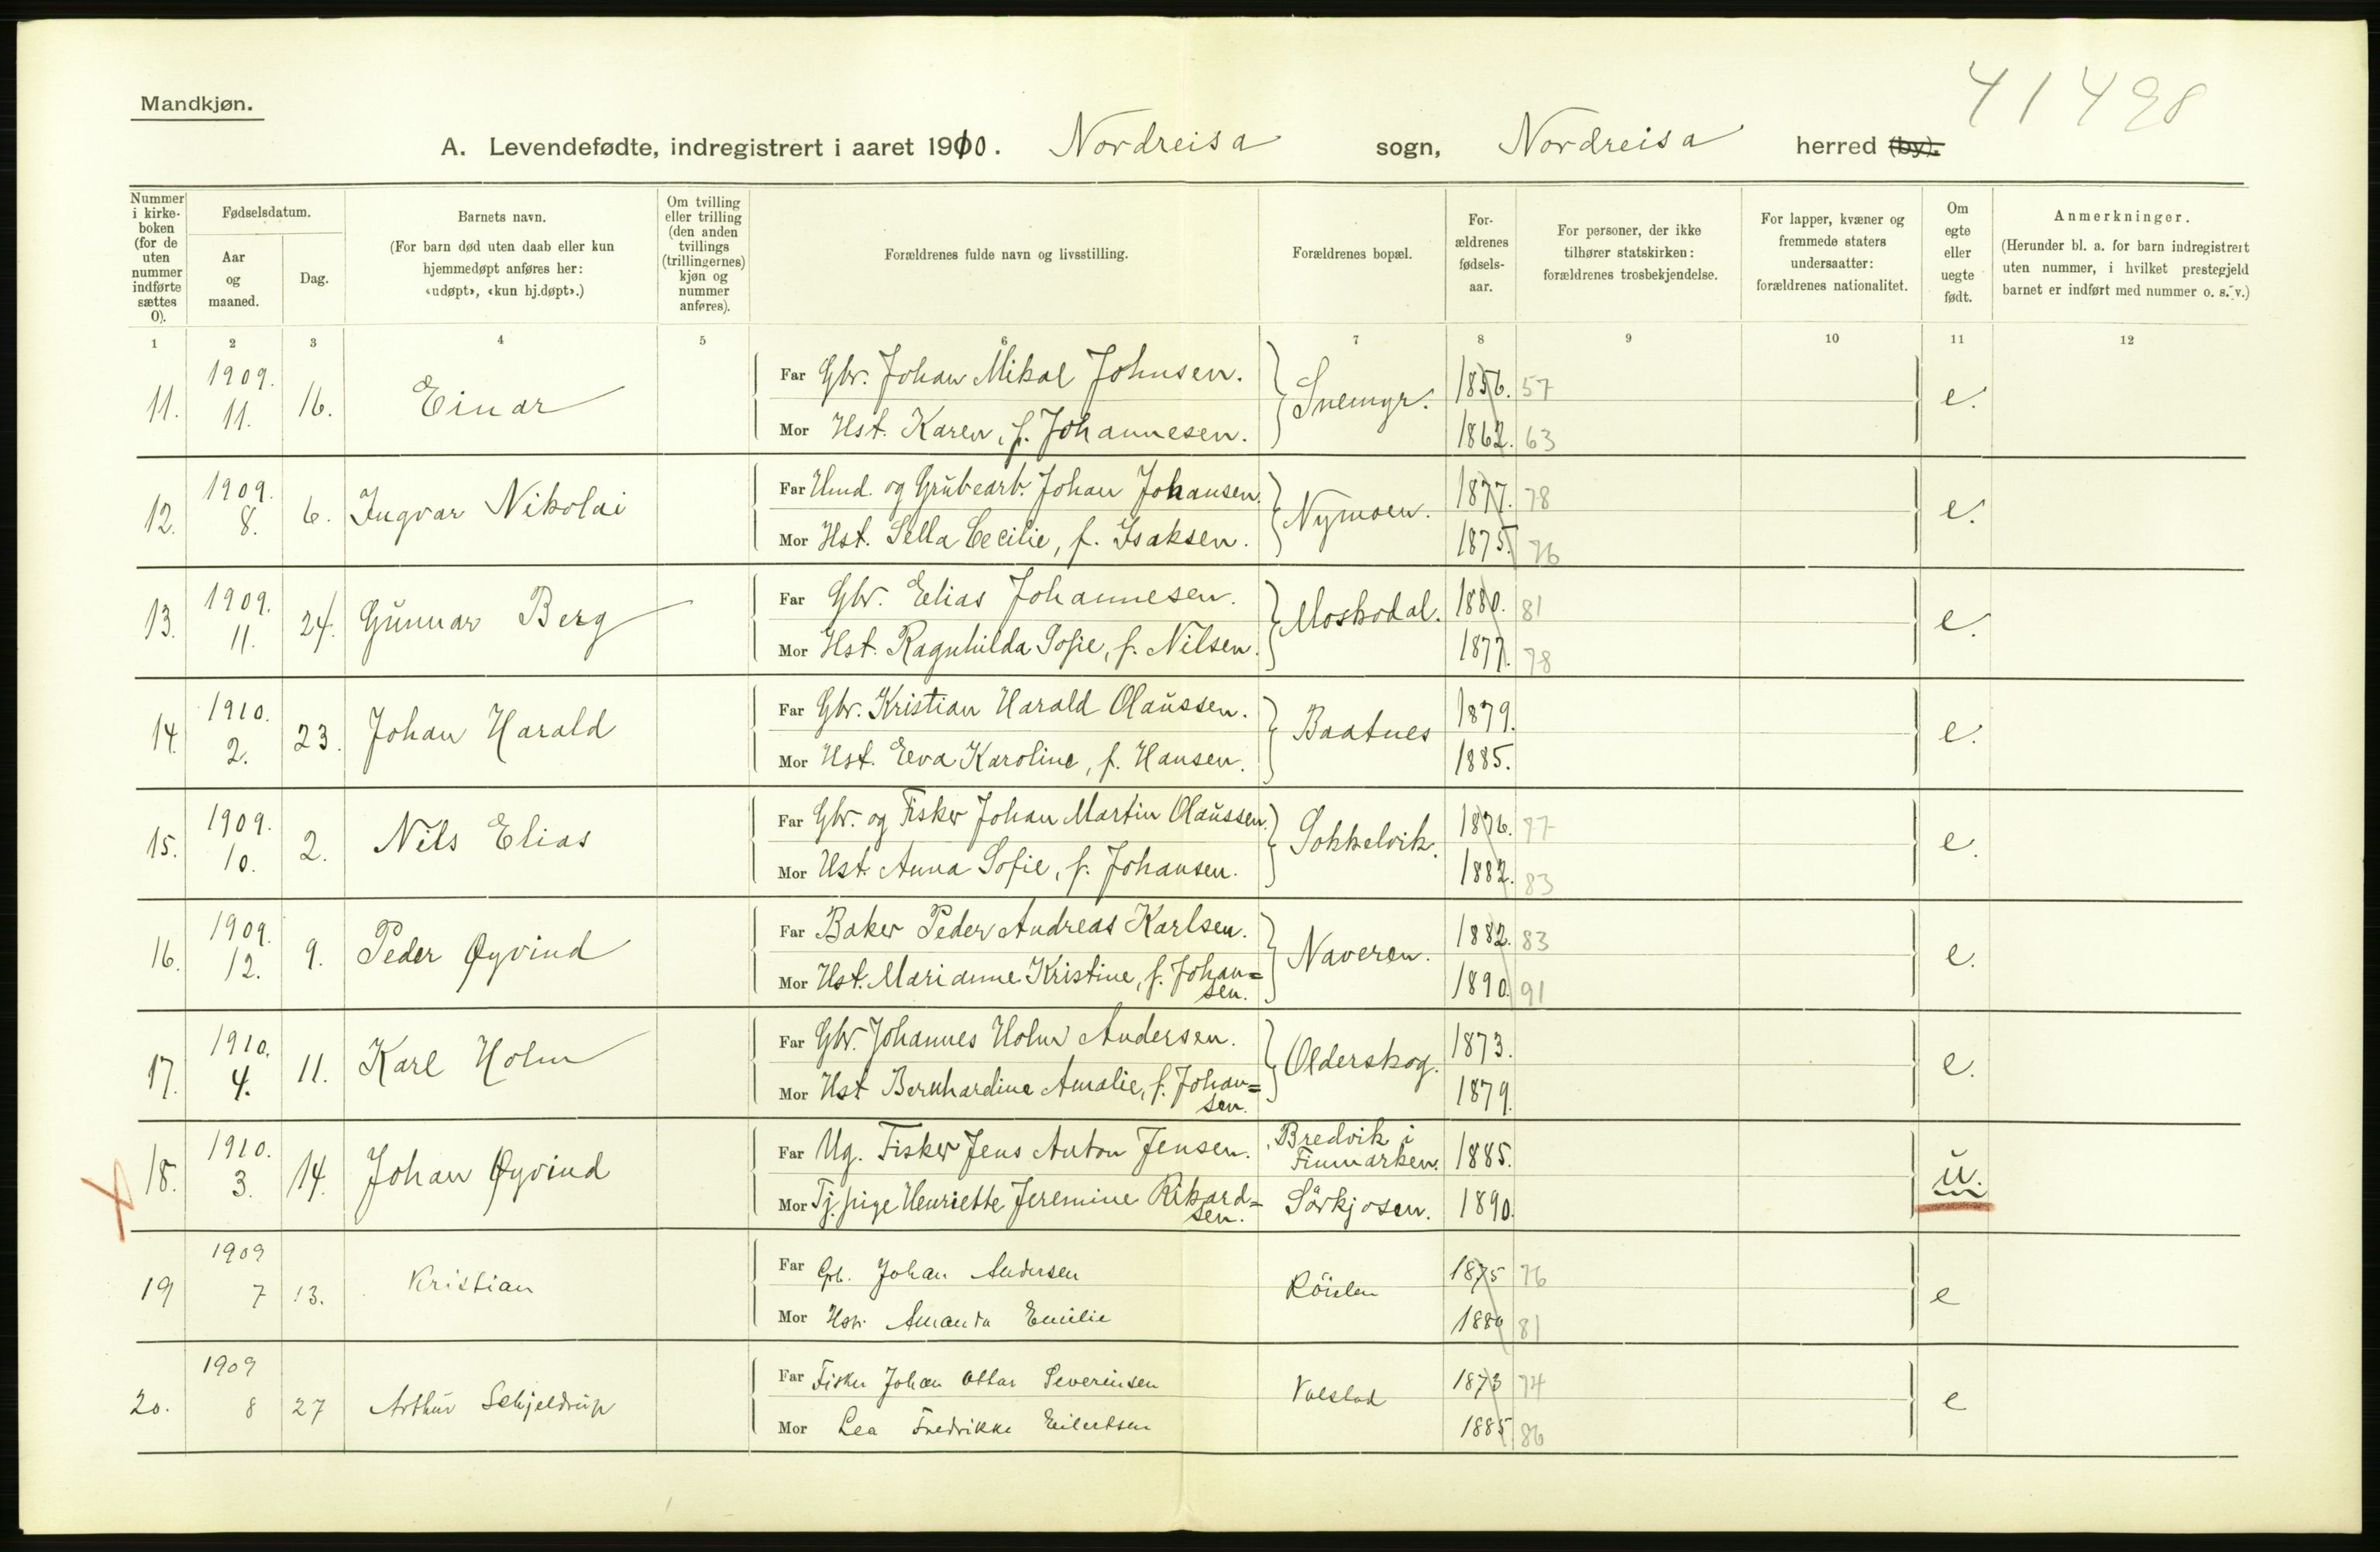 41498
Mandkjøn.
A. Levendefødte, indregistrert i aaret 1910. Nordreisa sogn, Nordreisa herred (by).
Nummer i kirke-boken (for de uten nummer indførte sættes 0).
Fødselsdatum.
Aar og maaned.
Dag.
Barnets navn.
(For barn død uten daab eller kun hjemmedøpt anføres her: «udøpt», «kun hj.døpt».)
Om tvilling eller trilling (den anden tvillings (trillingernes) kjøn og nummer anføres).
Forældrenes fulde navn og livsstilling.
Forældrenes bopæl.
For-ældrenes fødsels-aar.
For personer, der ikke tilhører statskirken: forældrenes trosbekjendelse.
For lapper, kvæner og fremmede staters undersaatter: forældrenes nationalitet.
Om egte eller uegte født.
Anmerkninger.
(Herunder bl. a. for barn indregistrert uten nummer, i hvilket prestegjeld barnet er indført med nummer o. s. v.)
1 2 3 4 5 6 7 8 9 10 11 12
11. 1909. 11. 16. Einar
Far Gbr. Johan Mikal Johnsen. Snemyr. 1856. 57 e.
Mor Hst. Karen, f. Johannesen. 1862. 63
12. 1909. 8. 6. Ingvar Nikolai
Far Hmd. og Grubearb. Johan Johansen. Nymoen. 1877. 78 e.
Mor Hst. Sella Cecilie, f. Isaksen. 1875. 76
13. 1909. 11. 24. Gunnar Berg
Far Gbr. Elias Johannesen. Moskodal. 1880. 81 e.
Mor Hst. Ragnhilda Sofie, f. Nilsen. 1877. 78
14. 1910. 2. 23. Johan Harald
Far Gbr. Kristian Harald Olaussen. Baatnes 1879. e.
Mor Hst. Eeva Karoline, f. Hansen. 1885.
15. 1909. 10. 2. Nils Elias
Far Gbr. og Fisker Johan Martin Olaussen. Sokkelvik. 1876. 77 e.
Mor Hst. Anna Sofie, f. Johansen. 1882. 83
16. 1909. 12. 9. Peder Øyvind
Far Baker Peder Andreas Karlsen. Naveren. 1882. 83 e.
Mor Hst. Marianne Kristine, f. Johan=
sen. 1890. 91
17. 1910. 4. 11. Karl Holm
Far Gbr. Johannes Holm Andersen. Olderskog. 1873. e.
Mor Hst Bernhardine Amalie, f. Johan=
sen. 1879.
18. 1910. 3. 14. Johan Øyvind
Far Ug. Fisker Jens Anton Jensen. Bredvik i Finmarken. 1885. u.
Mor Tj. pige Henriette Jeremine Rikard=
sen. Sörkjosen. 1890.
19 1909 7 13. Kristian
Far Gb. Johan Andersen Röielen 1875 76 e
Mor Hstr Amanda Emilie 1880 81
20. 1909 8 27 Arthur Schjeldrup
Far Fisker Johan Ottar Severinsen 1873 74 e
Mor Lea Fredrikke Eilertsen 1885 86